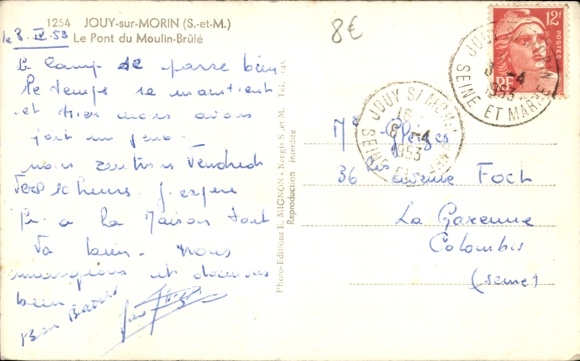 1254 JOUY-sur-MORIN (S.-et-M.)
Le Pont du Moulin-Brûlé
8€
le 8-IV-53
Le camp se passe bien
le temps se maintient
et hier nous avons
fait un feu.
nous rentrons Vendredi
vers heures. J'espère
à la Maison tout
va bien. Nous
mangeons et dormons
bien
Bons Baisers
Photo-Editions E. MIGNON - Nangis S.-et-M. Tél. 145
Reproduction interdite
12F
POSTES
RF
JOUY S/ MORIN
8 -4
1953
SEINE ET MARNE
JOUY S/ MORIN
8 -4
1953
SEINE ET MARNE
36 avenue Foch
La Garenne
Colombes
(Seine)